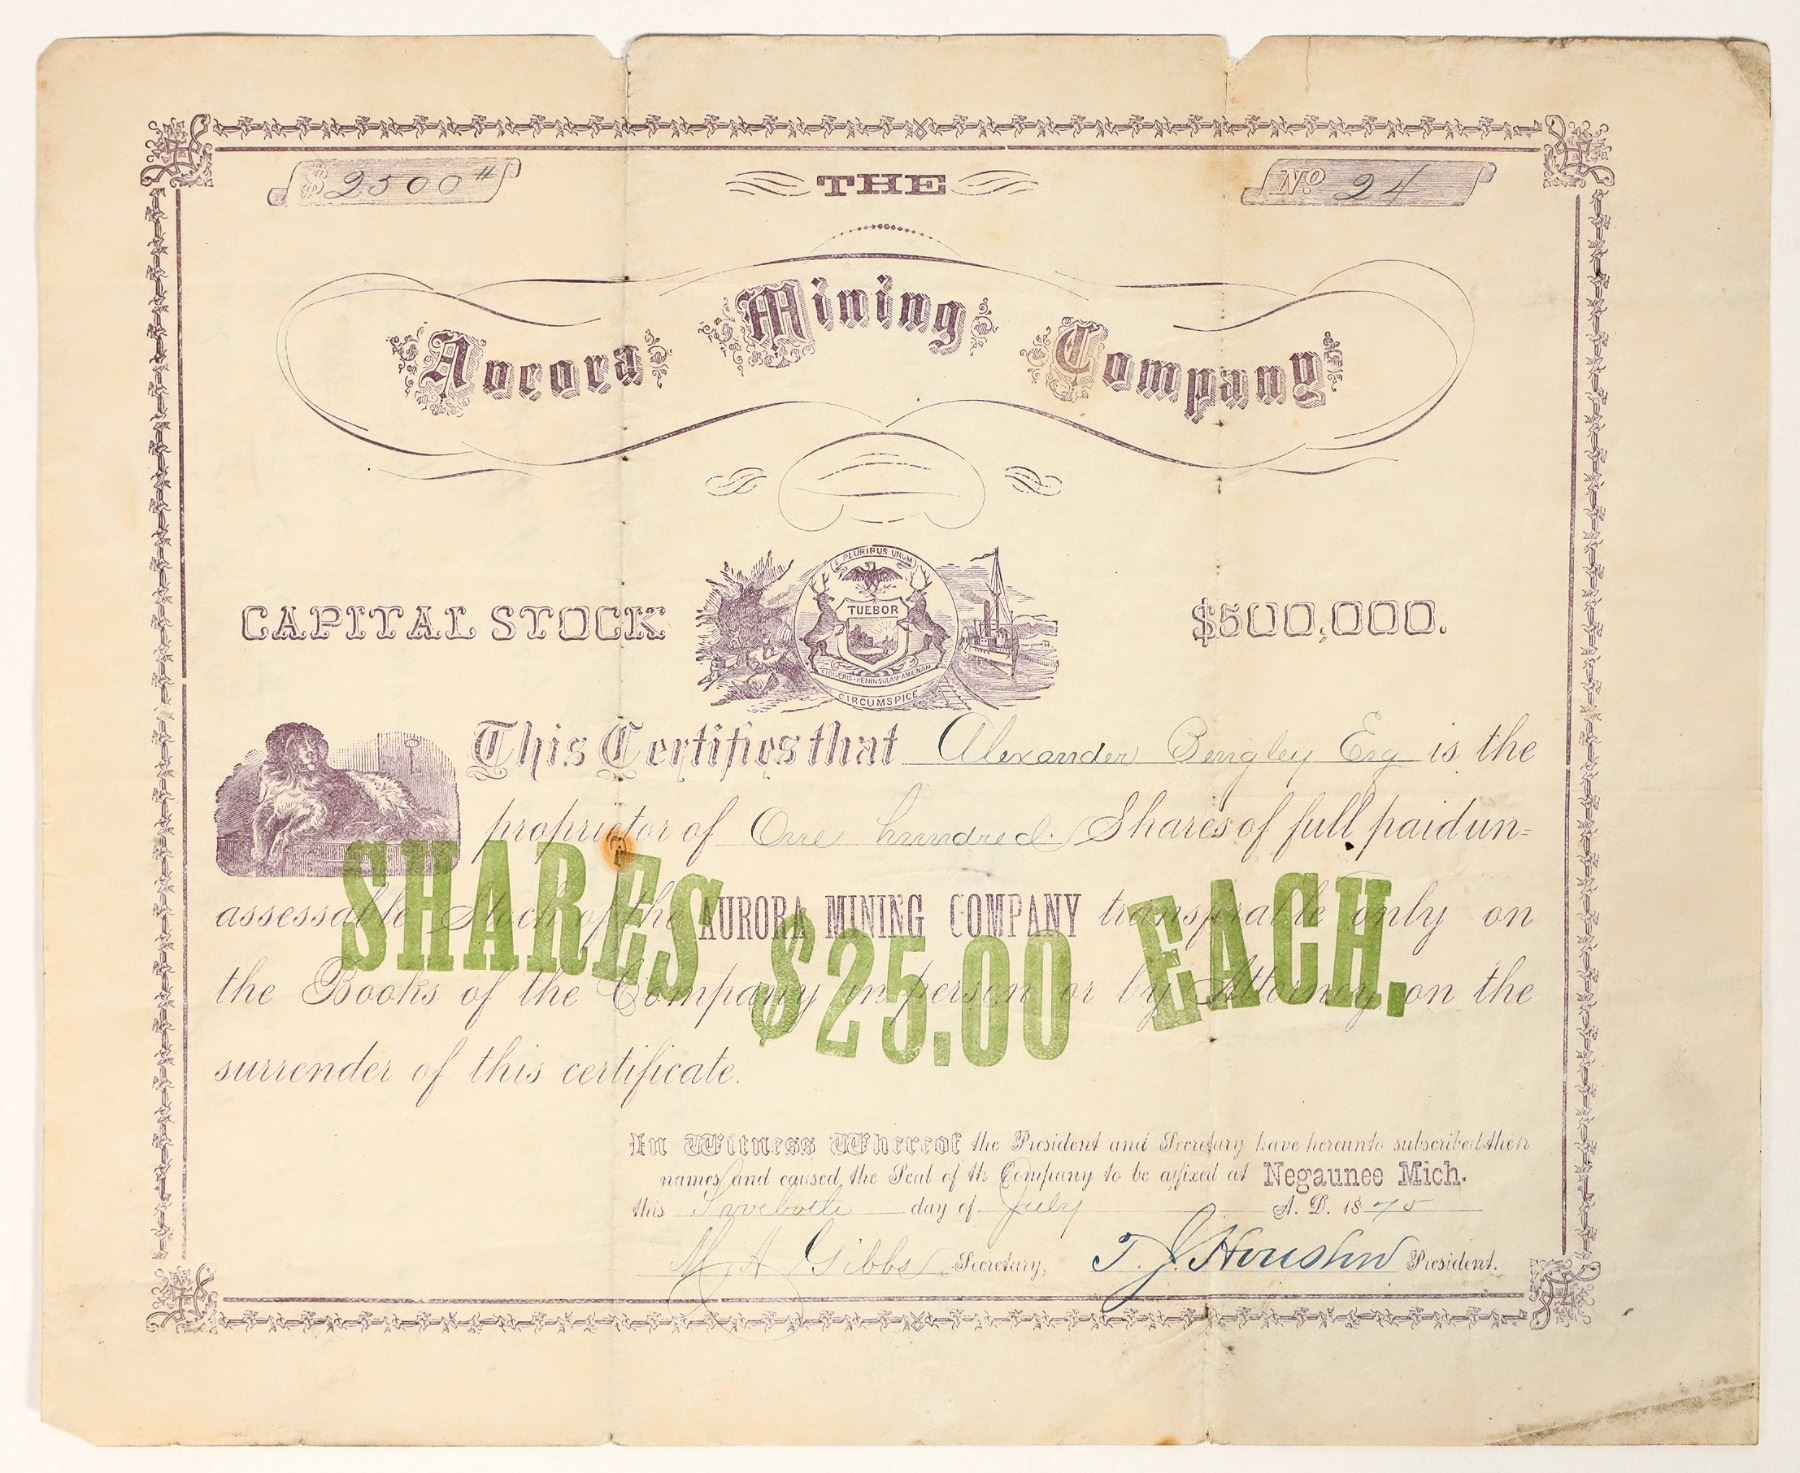 $ 2500 No 24
THE
Aurora Mining Company
E PLURIBUS UNUM
TUEBOR
CIRCUMSPICE
CAPITAL STOCK $500,000.
This Certifies that Alexander Bengley Esq is the
proprietor of One hundred Shares of full paid un=
assessable Stock of the AURORA MINING COMPANY transferable only on
the Books of the Company in person or by Attorney on the
surrender of this certificate.
SHARES $25.00 EACH.
In Witness Whereof the President and Secretary have hereunto subscribed their
names and caused the Seal of the Company to be affixed at Negaunee Mich.
this day of July A. D. 1875
M A Gibbs Secretary, T. J. Houston President.